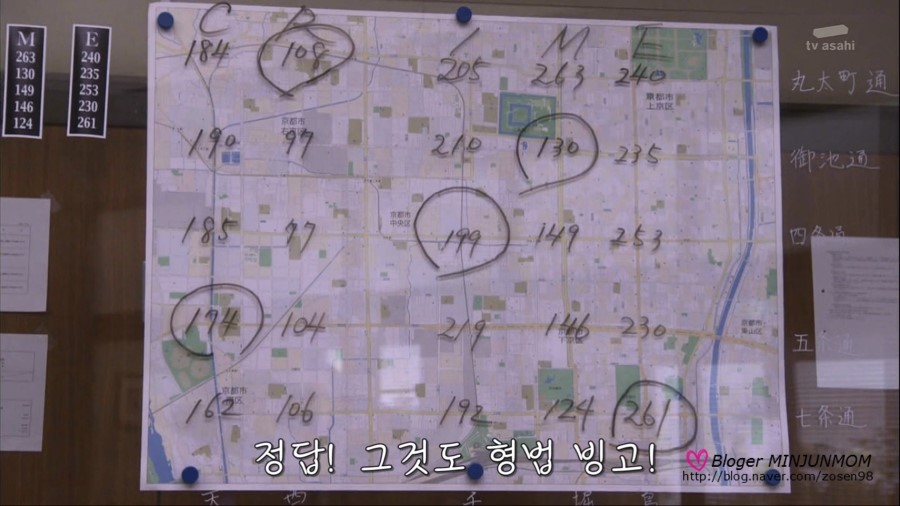 tv asahi
M
263
130
149
146
124
E
240
235
253
230
261
C R I M E
184 108 205 263 240
190 97 210 130 235
185 77 199 149 253
174 104 219 146 230
162 106 192 124 261
丸太町通
御池通
四条通
五条通
七条通
京都市
上京区
京都市
京都市
中央区
京都市
東山区
京都市
정답! 그것도 형법 빙고!
Bloger MINJUNMOM
http://blog.naver.com/zosen98